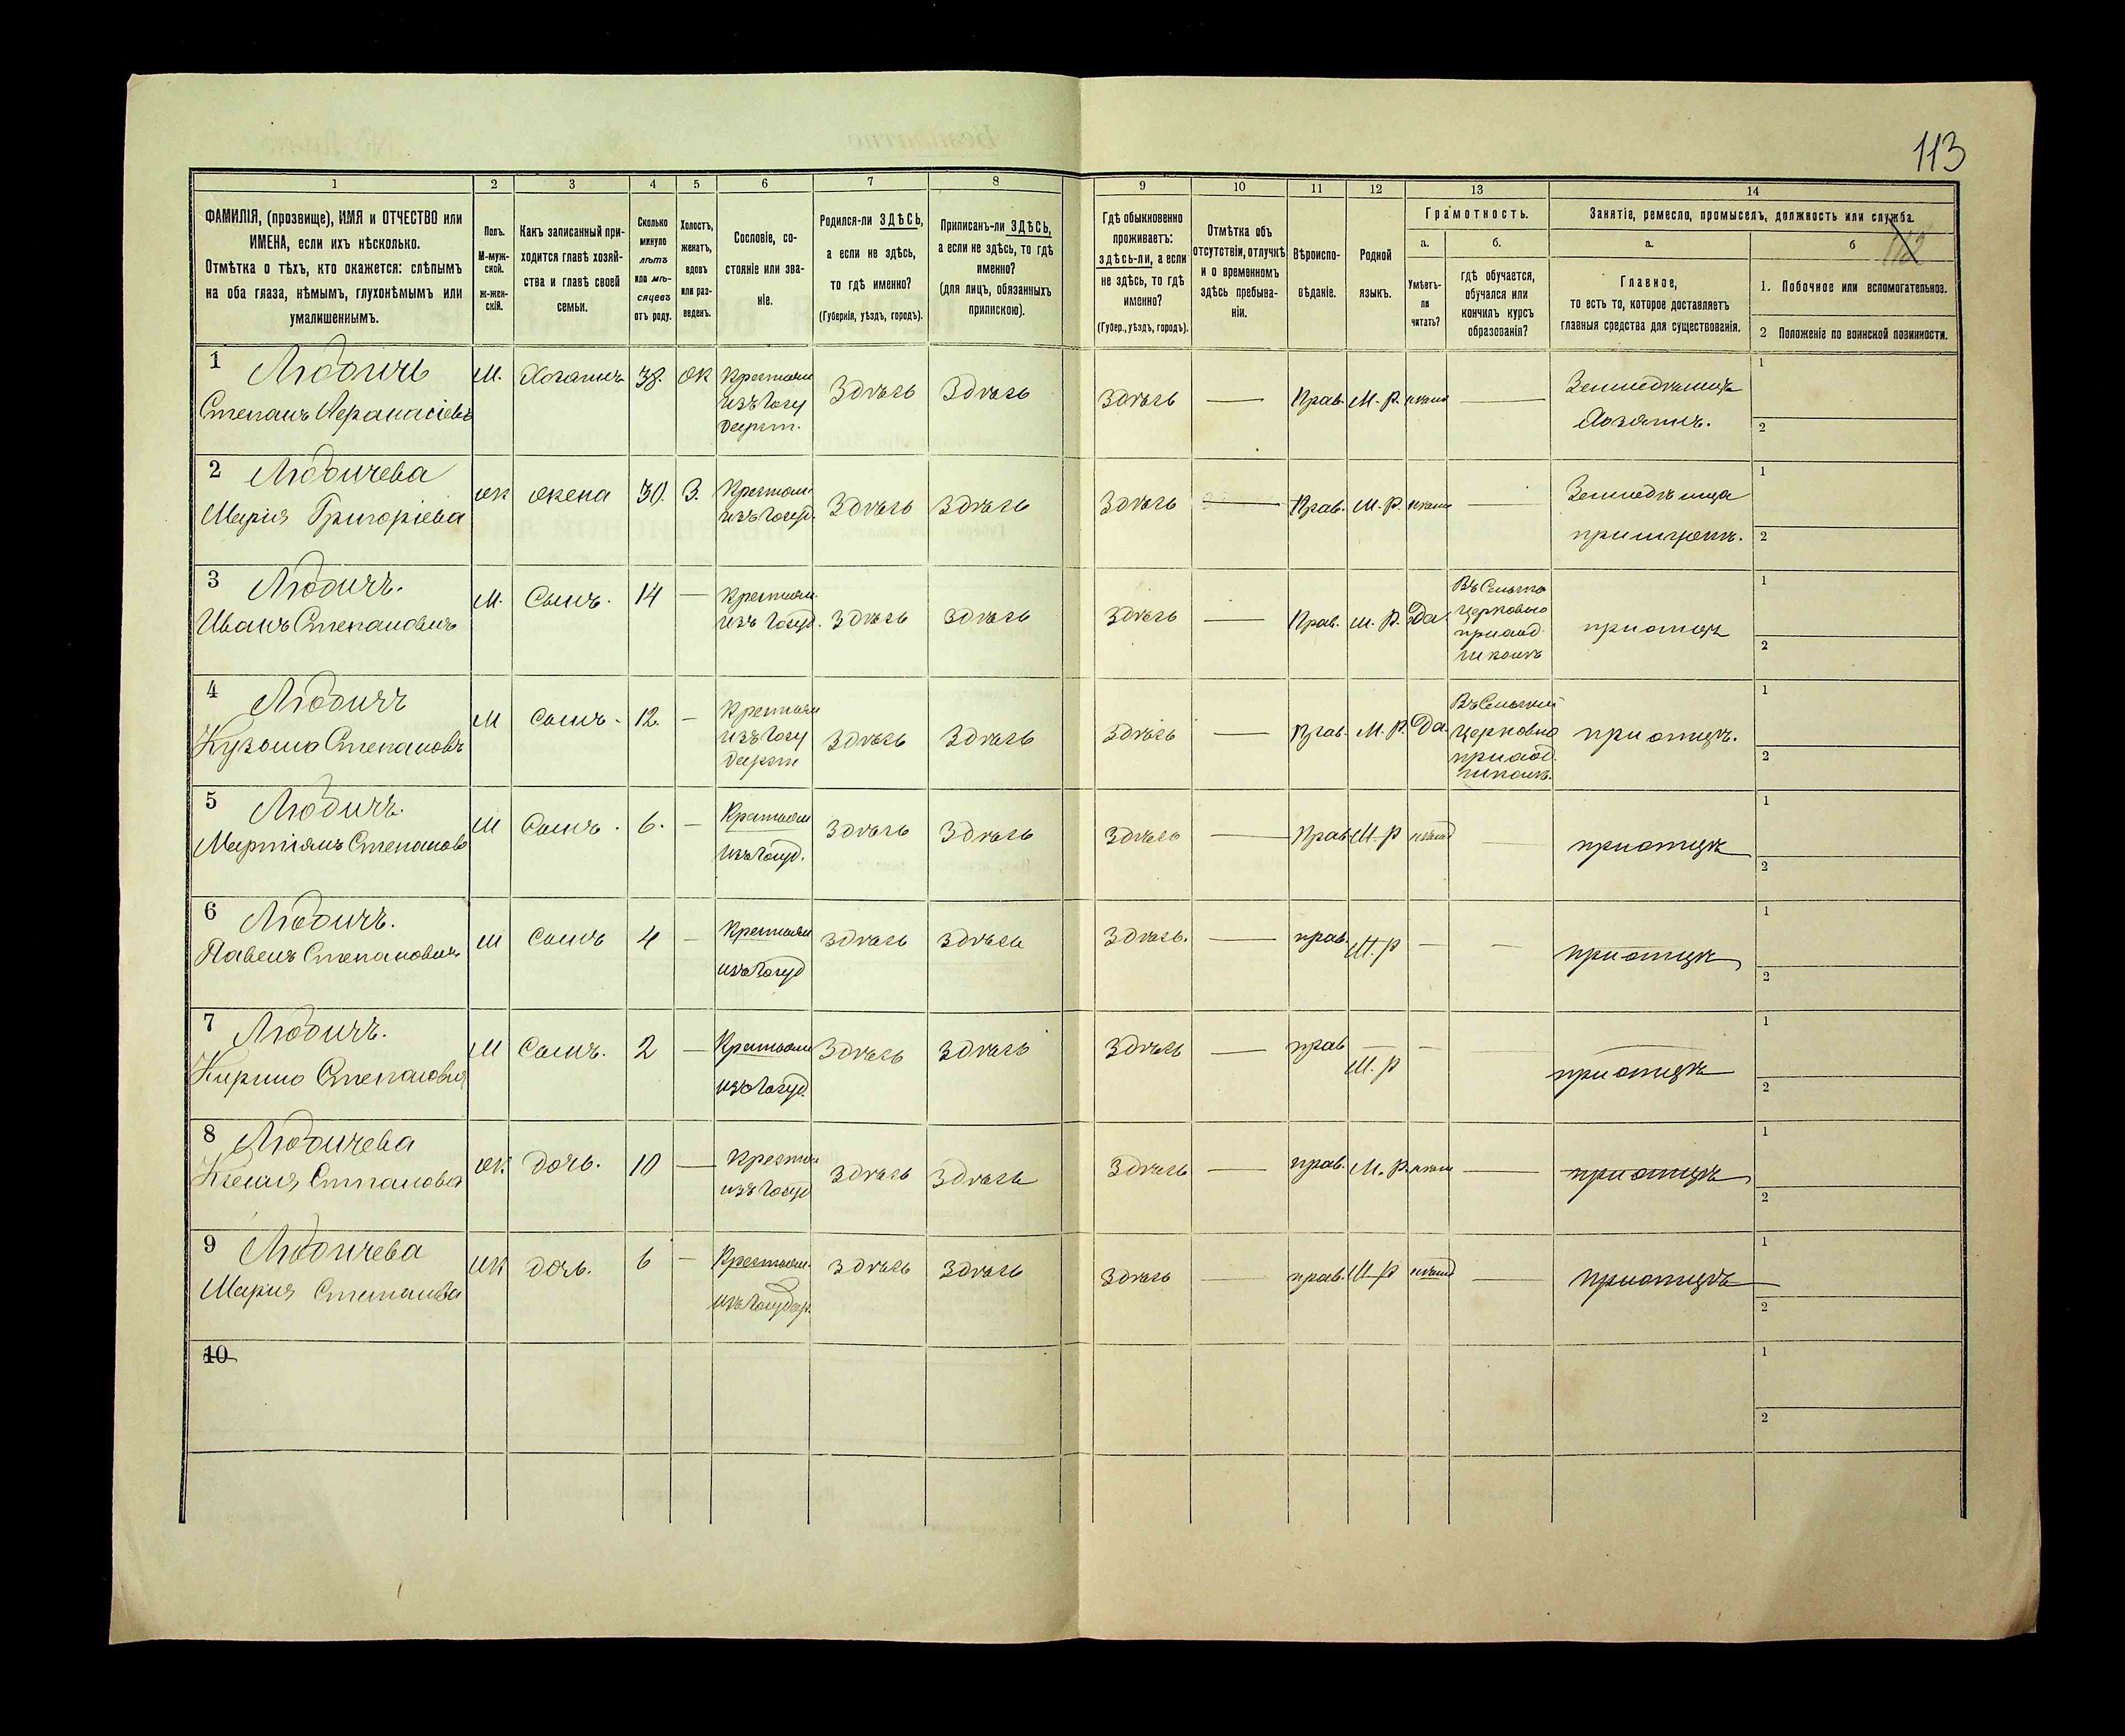 113
1 2 3 4 5 6 7 8 9 10 11 12 13 14
ФАМИЛІЯ, (прозвище), ИМЯ и ОТЧЕСТВО или
ИМЕНА, если ихъ нѣсколько.
Отмѣтка о тѣхъ, кто окажется: слѣпымъ
на оба глаза, нѣмымъ, глухонѣмымъ или
умалишеннымъ.
Полъ.
М-муж-
ской.
ж-жен-
скій.
Какъ записанный при-
ходится главѣ хозяй-
ства и главѣ своей
семьи.
Сколько
минуло
лѣтъ
или мѣ-
сяцевъ
отъ роду.
Холостъ,
женатъ,
вдовъ
или раз-
веденъ.
Сословіе, со-
стояніе или зва-
ніе.
Родился-ли ЗДѢСЬ,
а если не здѣсь,
то гдѣ именно?
(Губернія, уѣздъ, городъ).
Приписанъ-ли ЗДѢСЬ,
а если не здѣсь, то гдѣ
именно?
(для лицъ, обязанныхъ
припискою).
Гдѣ обыкновенно
проживаетъ:
здѣсь-ли, а если
не здѣсь, то гдѣ
именно?
(Губер., уѣздъ, городъ).
Отмѣтка объ
отсутствіи, отлучкѣ
и о временномъ
здѣсь пребыва-
ніи.
Вѣроиспо-
вѣданіе.
Родной
языкъ.
Грамотность.
а.
Умѣетъ-
ли
читать?
б.
гдѣ обучается,
обучался или
кончилъ курсъ
образованія?
Занятіе, ремесло, промыселъ, должность или служба.
а.
Главное,
то есть то, которое доставляетъ
главныя средства для существованія.
б
112
1. Побочное или вспомогательное.
2 Положеніе по воинской повинности.
1 Людичъ
Степанъ Афанасіевъ
М. Хозяинъ 38. ж Крестьян
изъ Госу
дарст.
Здѣсь Здѣсь Здѣсь — Прав. М. Р. нѣтъ —
Земледѣлецъ
Хозяинъ.
1
2
2 Людичева
Марія Григоріева
ж жена 30. З. Крестьян
изъ Госуд.
Здѣсь Здѣсь Здѣсь — Прав. М. Р. нѣтъ —
1
2
3 Людичъ.
Иванъ Степановичъ
М. Сынъ. 14 — Крестьян.
изъ Госуд.
Здѣсь Здѣсь Здѣсь — Прав. М. Р. Да.
при отцѣ
1
2
4 Людичъ
Кузьма Степановъ
М Сынъ. 12. — Крестьян
изъ Госу
дарст
Здѣсь Здѣсь Здѣсь — Прав. М. Р. Да.
при отцѣ.
1
2
5 Людичъ.
Мартіянъ Степановъ
М Сынъ. 6. — Крестьян
изъ Госуд.
Здѣсь Здѣсь Здѣсь — Прав. М. Р нѣтъ —
при отцѣ
1
2
6 Людичъ.
Павелъ Степановичъ
М Сынъ 4 — Крестьян
изъ Госуд
Здѣсь Здѣсь Здѣсь. — прав. М. Р — —
при отцѣ
1
2
7 Людичъ.
М Сынъ. 2 — Крестьян
изъ Госуд.
Здѣсь Здѣсь Здѣсь — прав М. Р — —
при отцѣ
1
2
8 Людичева
Ксенія Степанова
ж дочь. 10 — Крестьян
изъ Госуд
Здѣсь Здѣсь Здѣсь — прав. М. Р. нѣтъ —
при отцѣ
1
2
9 Людичева
Марія Степанова
ж дочь. 6 — Крестьян.
изъ Государ.
Здѣсь Здѣсь Здѣсь — прав. М. Р нѣтъ —
при отцѣ
1
2
10
1
2